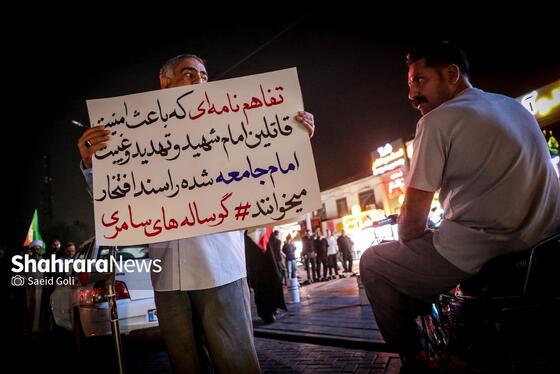 تفاهم نامه‌ای که باعث امنیت
قاتلین امام شهید و تهدید و غیبت
امام جامعه شده را سند افتخار
میخوانند #گوساله‌های سامری
Shahrara News
Saeid Goli